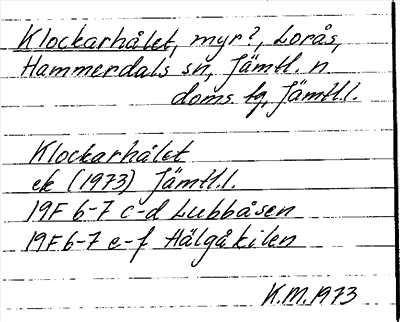 Klockarhålet, myr?, Lorås,
Hammerdals sn, Jämtl. n
doms. tg, Jämtl.l.
Klockarhålet
ek (1973) Jämtl.l.
19F 6-7 c-d Lubbåsen
19F 6-7 e-f Hälgåkilen
K.M. 1973